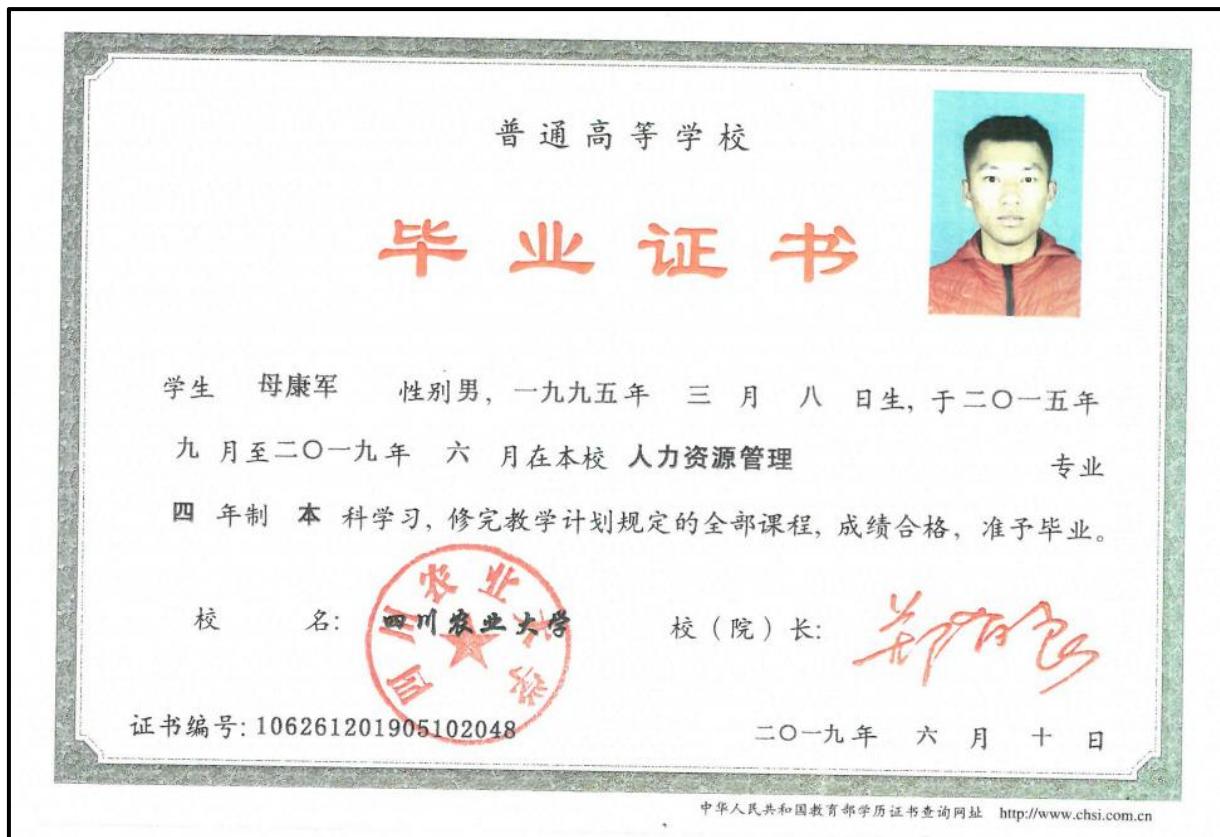 普通高等学校
毕业证书
学生 母康军 性别男，一九九五年 三 月 八 日生，于二〇一五年
九 月至二〇一九年 六 月在本校 人力资源管理 专业
四 年制 本 科学习，修完教学计划规定的全部课程，成绩合格，准予毕业。
四川农业大学
校 名：四川农业大学 校（院）长：郑有良
证书编号：106261201905102048 二〇一九年 六 月 十 日
中华人民共和国教育部学历证书查询网址 http://www.chsi.com.cn